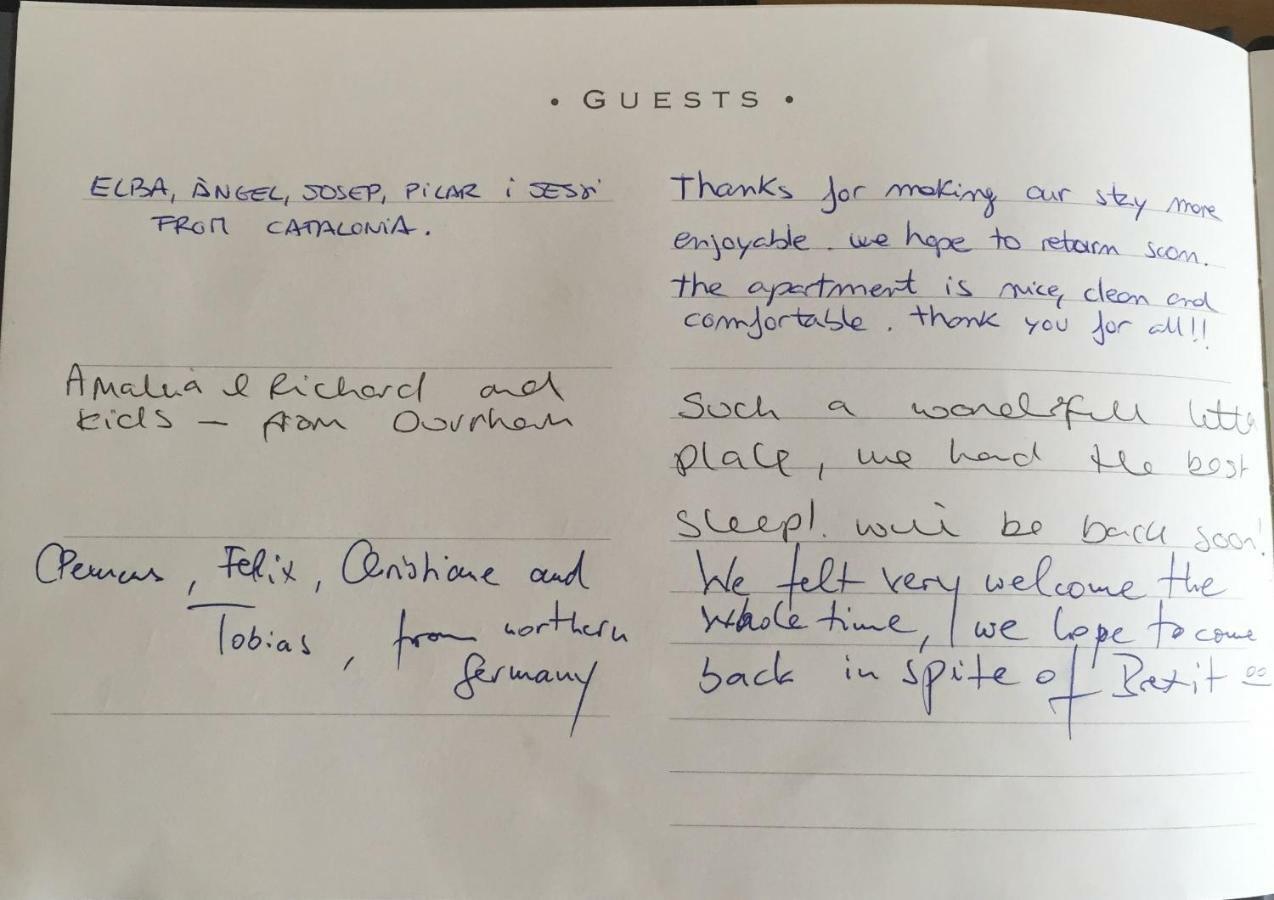 • GUESTS •
ELBA, ÀNGEL, JOSEP, PILAR i JESSI
FROM CATALONIA.
Thanks for making our stay more
enjoyable. we hope to retourn soon.
the apartment is nice, clean and
comfortable. thank you for all!!
Amalia & Richard and
kids – from Durham
Such a wonderfull little
place, we had the best
sleep! will be back soon!
Felix, Christiane and
Tobias, from northern
Germany
We felt very welcome the
whole time, we hope to come
back in spite of Brexit